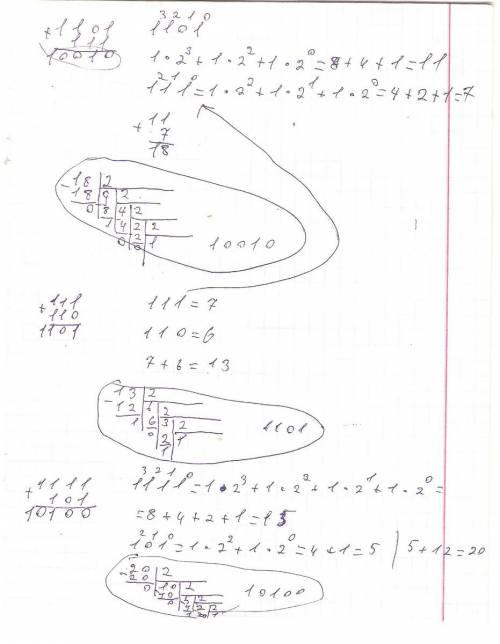 +11101 3 2 1 0
111 1101
10010 1·2³+1·2²+1·2⁰=8+4+1=11
2 1 0
111=1·2²+1·2¹+1·2⁰=4+2+1=7
+11
7
18
-18 2
18 9 2
0 8 4 2
1 4 2 2
0 2 1
0
10010
+111 111=7
110 110=6
1101 7+6=13
-13 2
12 6 2
1 6 3 2
0 2 1
1
1101
3 2 1 0
+1111 1111=1·2³+1·2²+1·2¹+1·2⁰=
101
10100 =8+4+2+1=15
2 1 0
101=1·2²+1·2⁰=4+1=5 | 5+12=20
-20 2
20 10 2
0 10 5 2
0 4 2 2
1 2 1
10100